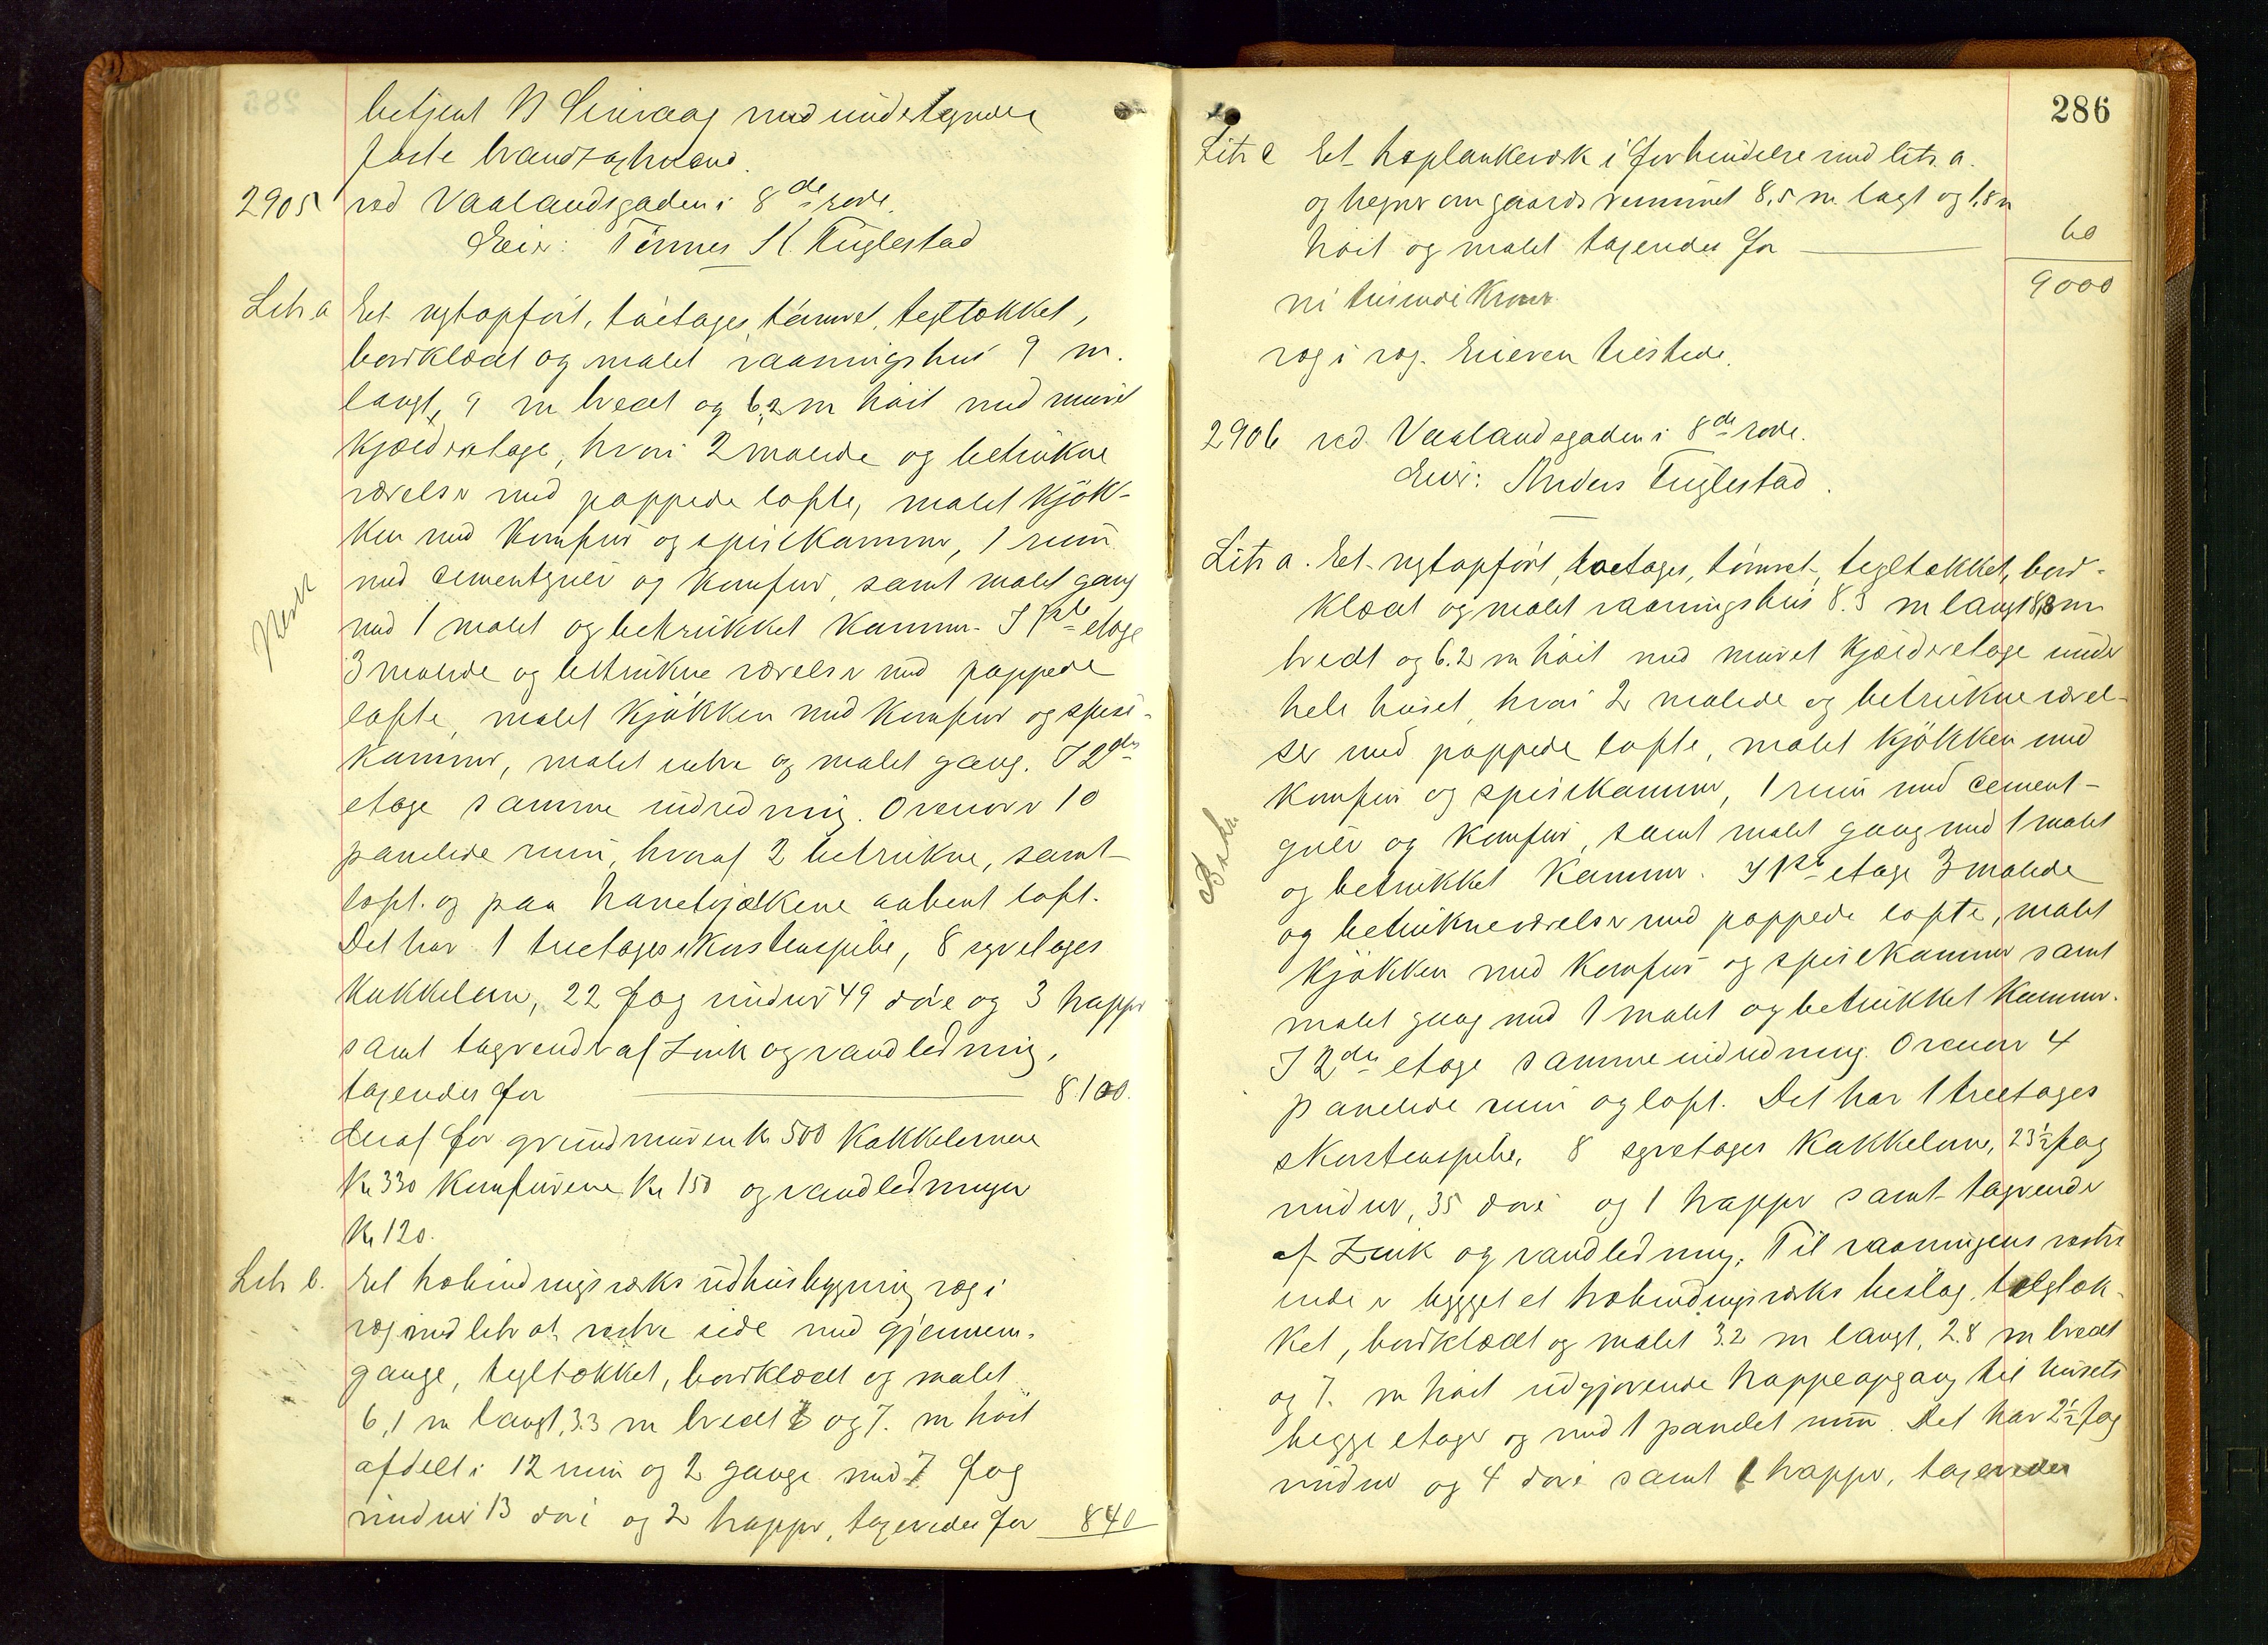 betjent N Limaag med undertegnede
faste brandtaxtmænd.
2905 ved Vaalandsgaden i 8de rode.
Eier: Tönnes K. Fuglestad
Litr a Et nytopført, toetages, tömret, tegltækket,
bordklædt og malet vaaningshus 9 m.
langt, 9 m bredt og 6,2 m höit med muret
Kjælderetage, hvori 2 malede og betrukne
værelser med pappede lofte, malet Kjök-
ken med Komfur og spisekammer, 1 rum
med cementgulv og Komfur, samt malet gang
med 1 malet og betrukket Kammer. I 1ste etage
3 malede og betrukne værelser med pappede
lofte, malet Kjökken med Komfur og spise-
kammer, malet entre og malet gang. I 2den
etage samme indredning. Ovenover 10
panelede rum, hvoraf 2 betrukne, samt
loft. og paa hanebjælkene aabent loft.
Det har 1 treetages Skorstenspibe, 8 syvetages
Kakkelovne, 22 fag vinduer 49 döre og 3 trapper
samt tagrender af Zink og vandledning,
taxendes for 8.100.
deraf for grundmuren Kr 500 Kakkelovnene
Kr 330 Komfurene Kr 150 og vandledningen
Kr 120.
Litr b. Et halvbindingsværks udhusbygning væg i
væg med litr a's vestre side med gjennem-
gange, tegltækket, bordklædt og malet
6,1 m langt, 3.3 m bredt og 7. m höit
afdelt i 12 rum og 2 gange med 7 fag
vinduer 13 döre og 2 trapper, taxeredes for 840
286
Litr c Et træplankeværk i forbindelse med litr. a.
og hegner om gaardsrummet 8,5 m. lagt og 1,8 m
höit og malet taxendes for 60
9000
ni tusinde Kroner.
væg i væg. Eieren tilstede.
2906 ved Vaalandsgaden i 8de rode.
Eier: Anders Fuglestad.
Litr a. Et nytopført, toetages, tömret, tegltækket, bord-
klædt og malet vaaningshus 8.3 m langt 8,8 m
bredt og 6.2 m höit med muret Kjælderetage under
hele huset, hvori 2 malede og betrukne værel-
ser med pappede lofte, malet Kjökken med
Komfur og spisekammer, 1 rum med cement-
gulv og Komfur, samt malet gang med 1 malet
og betrukket Kammer. I 1ste etage 3 malede
og betrukne værelser med pappede lofte, malet
Kjökken med Komfur og spisekammer samt
malet gang med 1 malet og betrukket Kammer.
I 2den etage samme indredning. Ovenover 4
panelede rum og loft. Det har 1 treetages
Skorstenspibe, 8 syvetages Kakkelovne, 23½ fag
vinduer, 35 döre og 1 trappe samt tagrender
af Zink og vandledning. Til vaaningens vestre
ende er bygget et halvbindingsværks bislag, tegltæk-
ket, bordklædt og malet 3.2 m langt, 2.8 m bredt
og 7. m höit udgjørende trappeopgang til husets
begge etager og med 1 panelet rum. Det har 2½ fag
vinduer og 4 döre samt 1 trappe, taxeredes